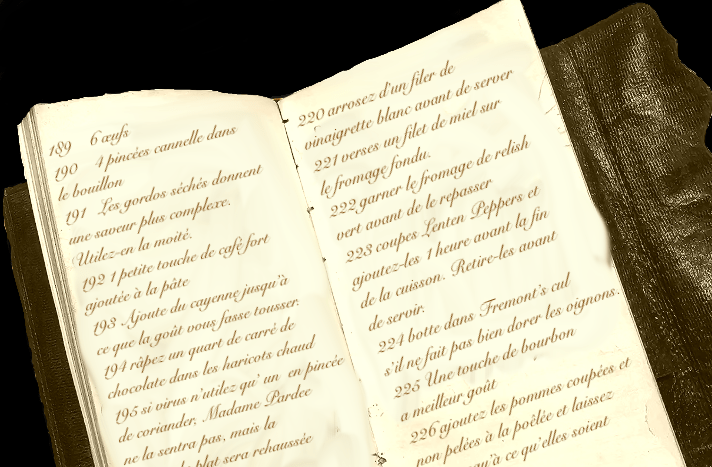 189 6 œufs
190 4 pincées cannelle dans
le bouillon
191 Les gordos séchés donnent
une saveur plus complexe.
Utilez-en la moité.
192 1 petite touche de café fort
ajoutée à la pâte
193 Ajoute du cayenne jusqu'à
ce que la goût vous fasse tousser.
194 râpez un quart de carré de
chocolate dans les haricots chaud
195 si virus n'utilez qu' un en pincée
de coriander, Madame Pardee
ne la sentra pas, mais la
le plat sera rehaussée
220 arrosez d'un filer de
vinaigrette blanc avant de server
221 verses un filet de miel sur
le fromage fondu.
222 garner le fromage de relish
vert avant de le repasser
223 coupes Lenten Peppers et
ajoutez-les 1 heure avant la fin
de la cuisson. Retire-les avant
de servir.
224 botte dans Fremont's cul
s'il ne fait pas bien dorer les oignons.
225 Une touche de bourbon
a meilleur goût
226 ajoutez les pommes coupées et
non pelées à la poêlée et laissez
qu'à ce qu'elles soient